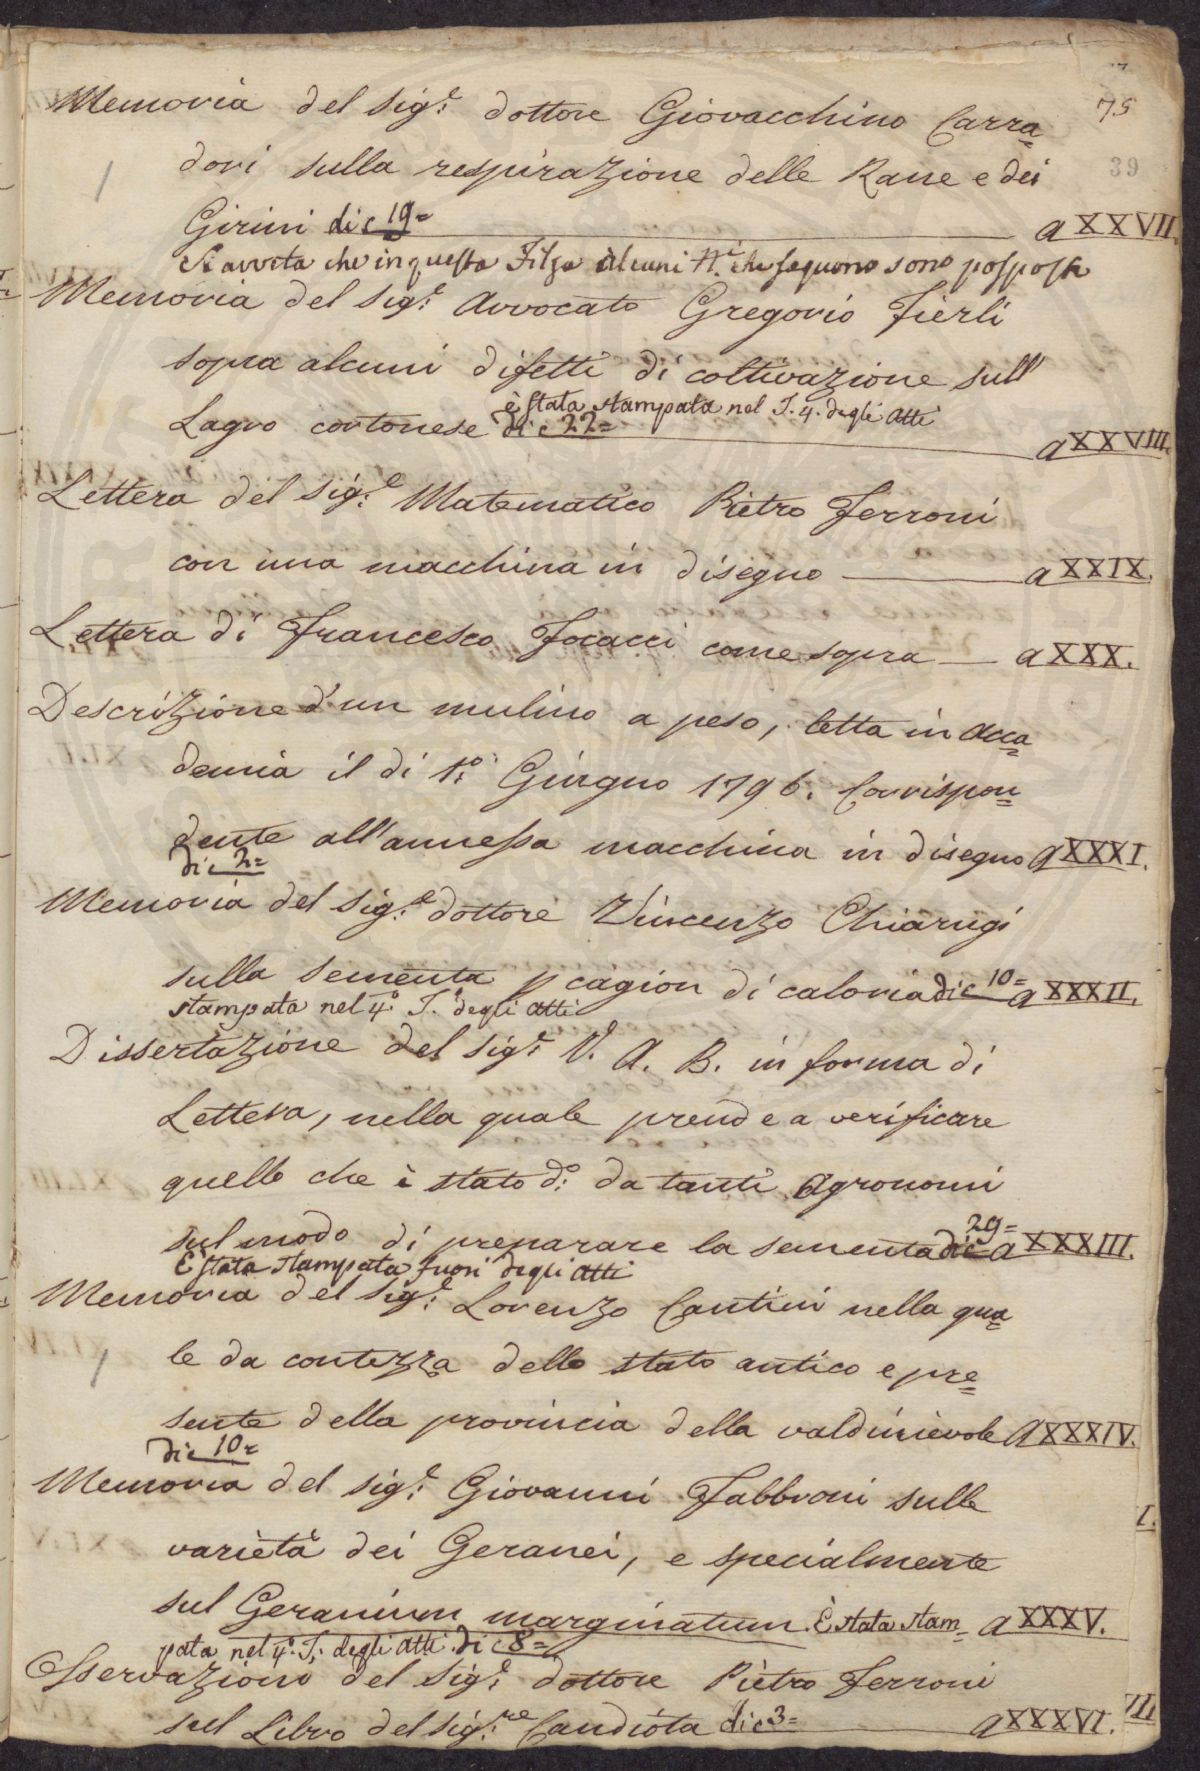 75
39
Memoria del Sig.e dottore Giovacchino Carra=
dori sulla respirazione delle Rane e dei
Girini di c 19= a XXVII.
Si avverta che in questa Filza alcuni N.i che seguono sono posposti
Memoria del Sig.e Avvocato Gregorio Fierli
sopra alcuni difetti di coltivazione sull'
è stata stampata nel T. 4. degli Atti
Lagro cortonese di c 22= a XXVIII.
Lettera del Sig.e Matematico Pietro Ferroni
con una macchina in disegno a XXIX.
Lettera di Francesco Focacci come sopra a XXX.
Descrizione d'un mulino a peso, letta in Acca=
demia il dì 1.o Giugno 1796. Corrispon=
dente all'annessa macchina in disegno a XXXI.
di c 2=
Memoria del Sig.e dottore Vincenzo Chiarugi
sulla sementa p cagion di caloria di c 10= a XXXII.
stampata nel 4.o T. degli Atti
Dissertazione del Sig.e V. A. B. in forma di
Lettera, nella quale prende a verificare
quello che è stato d.o da tanti Agronomi
sul modo di preparare la sementa di c 29= a XXXIII.
È stata stampata fuori degli Atti
Memoria del Sig.e Lorenzo Cantini nella qua=
le da contezza dello stato antico e pre=
sente della provincia della valdinievole a XXXIV.
di c 10=
Memoria del Sig.e Giovanni Fabbroni sulle
varietà dei Geranei, e specialmente
sul Geranium marginatum. È stata stam= a XXXV.
pata nel 4.o T. degli Atti. di c 8=
Osservazioni del Sig.e dottore Pietro Ferroni
sul Libro del Sig.re Candiota di c 3= a XXXVI.